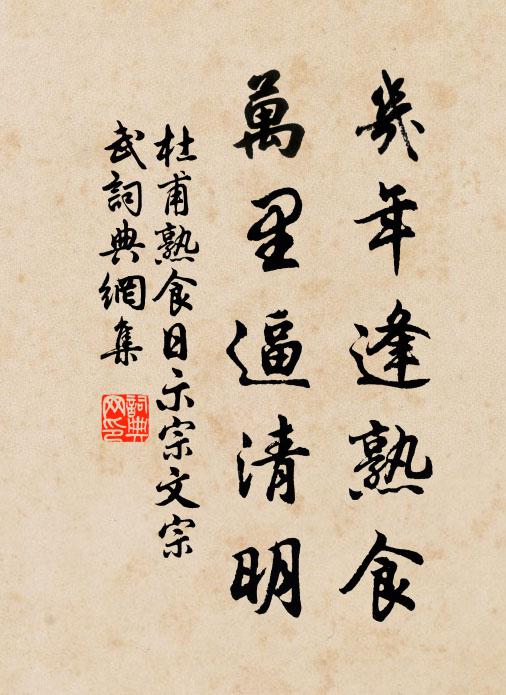 幾年逢熟食
萬里逼清明
杜甫熟食日示宗文宗
武詞典網集
詞典
网印